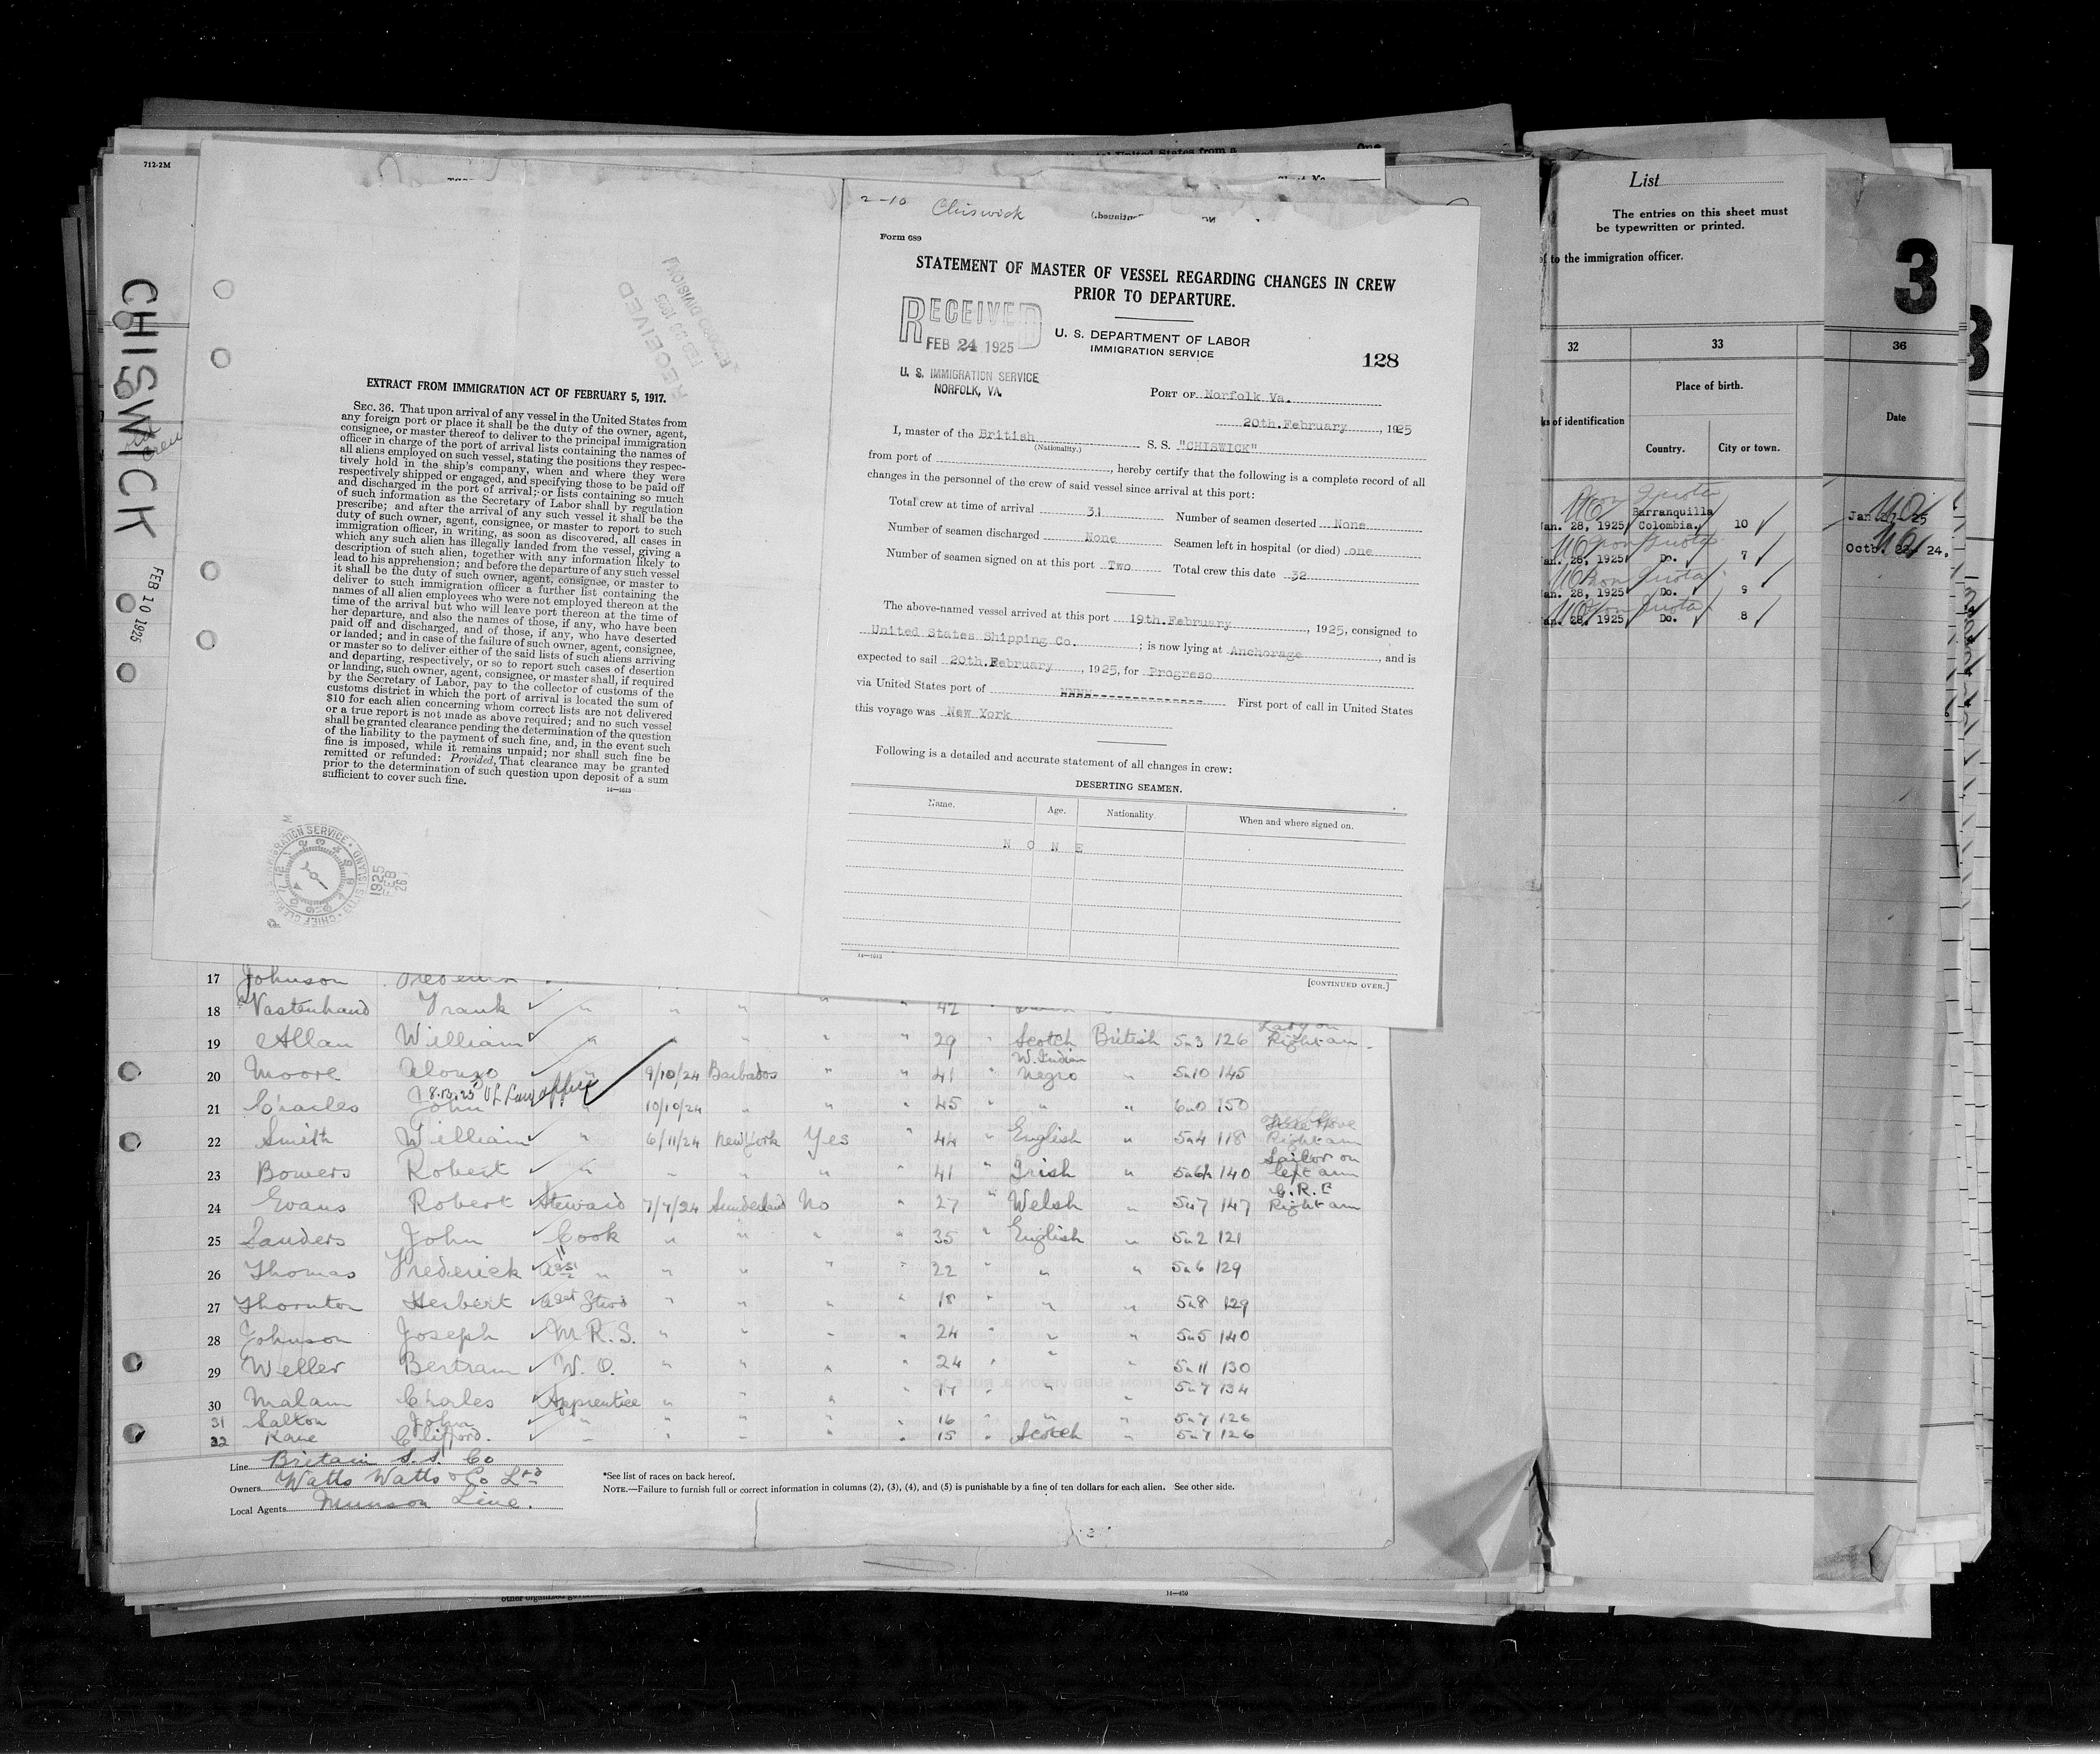 712-2M
CHISWICK
FEB 10 1925
EXTRACT FROM IMMIGRATION ACT OF FEBRUARY 5, 1917.
SEC. 36. That upon arrival of any vessel in the United States from
any foreign port or place it shall be the duty of the owner, agent,
consignee, or master thereof to deliver to the principal immigration
officer in charge of the port of arrival lists containing the names of
all aliens employed on such vessel, stating the positions they respec-
tively hold in the ship's company, when and where they were
respectively shipped or engaged, and specifying those to be paid off
and discharged in the port of arrival; or lists containing so much
of such information as the Secretary of Labor shall by regulation
prescribe; and after the arrival of any such vessel it shall be the
duty of such owner, agent, consignee, or master to report to such
immigration officer, in writing, as soon as discovered, all cases in
which any such alien has illegally landed from the vessel, giving a
description of such alien, together with any information likely to
lead to his apprehension; and before the departure of any such vessel
it shall be the duty of such owner, agent, consignee, or master to
deliver to such immigration officer a further list containing the
names of all alien employees who were not employed thereon at the
time of the arrival but who will leave port thereon at the time of
her departure, and also the names of those, if any, who have been
paid off and discharged, and of those, if any, who have deserted
or landed; and in case of the failure of such owner, agent, consignee,
or master so to deliver either of the said lists of such aliens arriving
and departing, respectively, or so to report such cases of desertion
or landing, such owner, agent, consignee, or master, shall, if required
by the Secretary of Labor, pay to the collector of customs of the
customs district in which the port of arrival is located the sum of
$10 for each alien concerning whom correct lists are not delivered
or a true report is not made as above required; and no such vessel
shall be granted clearance pending the determination of the question
of the liability to the payment of such fine, and, in the event such
fine is imposed, while it remains unpaid; nor shall such fine be
remitted or refunded: Provided, That clearance may be granted
prior to the determination of such question upon deposit of a sum
sufficient to cover such fine.
14—1613
RECEIVED
1925
FEB
2-10 Chiswick
Form 689
STATEMENT OF MASTER OF VESSEL REGARDING CHANGES IN CREW
PRIOR TO DEPARTURE.
RECEIVED
FEB 24 1925
U. S. IMMIGRATION SERVICE
NORFOLK, VA.
U. S. DEPARTMENT OF LABOR
IMMIGRATION SERVICE
128
PORT OF Norfolk Va.
20th. February, 1925
I, master of the British S. S. "CHISWICK"
(Nationality.)
from port of , hereby certify that the following is a complete record of all
changes in the personnel of the crew of said vessel since arrival at this port:
Total crew at time of arrival 31 Number of seamen deserted None
Number of seamen discharged None Seamen left in hospital (or died) one
Number of seamen signed on at this port Two Total crew this date 32
The above-named vessel arrived at this port 19th. February, 1925, consigned to
United States Shipping Co. ; is now lying at Anchorage, and is
expected to sail 20th. February, 1925, for Progreso
via United States port of First port of call in United States
this voyage was New York
Following is a detailed and accurate statement of all changes in crew:
DESERTING SEAMEN.
Name. Age. Nationality. When and where signed on.
N O N E
14—1613
[CONTINUED OVER.]
17 Johnson
18 Vastenhand Frank " " " " " 42 "
19 Allan William " " " " " 29 " Scotch British 5"3 126 Right arm
20 Moore Alonzo " 9/10/24 Barbados " " 41 " W. Indian Negro " 5"10 145
21 Charles John " 10/10/24 " " " 45 " " " 6"0 150
22 Smith William " 6/11/24 New York Yes " 44 " English " 5"4 118 Right arm
23 Bowers Robert " " " " " 41 " Irish " 5"6½ 140 Sailor on left arm
24 Evans Robert Steward 7/7/24 Sunderland No " 27 " Welsh " 5"7 147 G.R.E Right arm
25 Sanders John Cook " " " " 35 " English " 5"2 121
26 Thomas Frederick Asst " " " " " 22 " " 5"6 129
27 Thornton Herbert Asst Stwd " " " " 18 " " " 5"8 129
28 Johnson Joseph M.R.S. " " " " 24 " " " 5"5 140
29 Weller Bertram W.O. " " " " 24 " " " 5"11 130
30 Malam Charles Apprentice " " " " 17 " " " 5"7 134
31 Salton John " " " " " 16 " " " 5"7 126
32 Kane Clifford. " " " " " 15 " Scotch " 5"7 126
Line Britain S.S. Co
Owners Watts Watts & Co Ltd
Local Agents Munson Line.
*See list of races on back hereof.
NOTE.—Failure to furnish full or correct information in columns (2), (3), (4), and (5) is punishable by a fine of ten dollars for each alien. See other side.
14—450
List
The entries on this sheet must
be typewritten or printed.
to the immigration officer.
32 33
Place of birth.
of identification
Country. City or town.
Non Quota
Barranquilla
Jan. 28, 1925 Colombia. 10
Non Quota
Jan. 28, 1925 Do. 7
Non Quota
Jan. 28, 1925 Do. 9
Non Quota
Jan. 28, 1925 Do. 8
3
36
Date
Octb. 22 24.